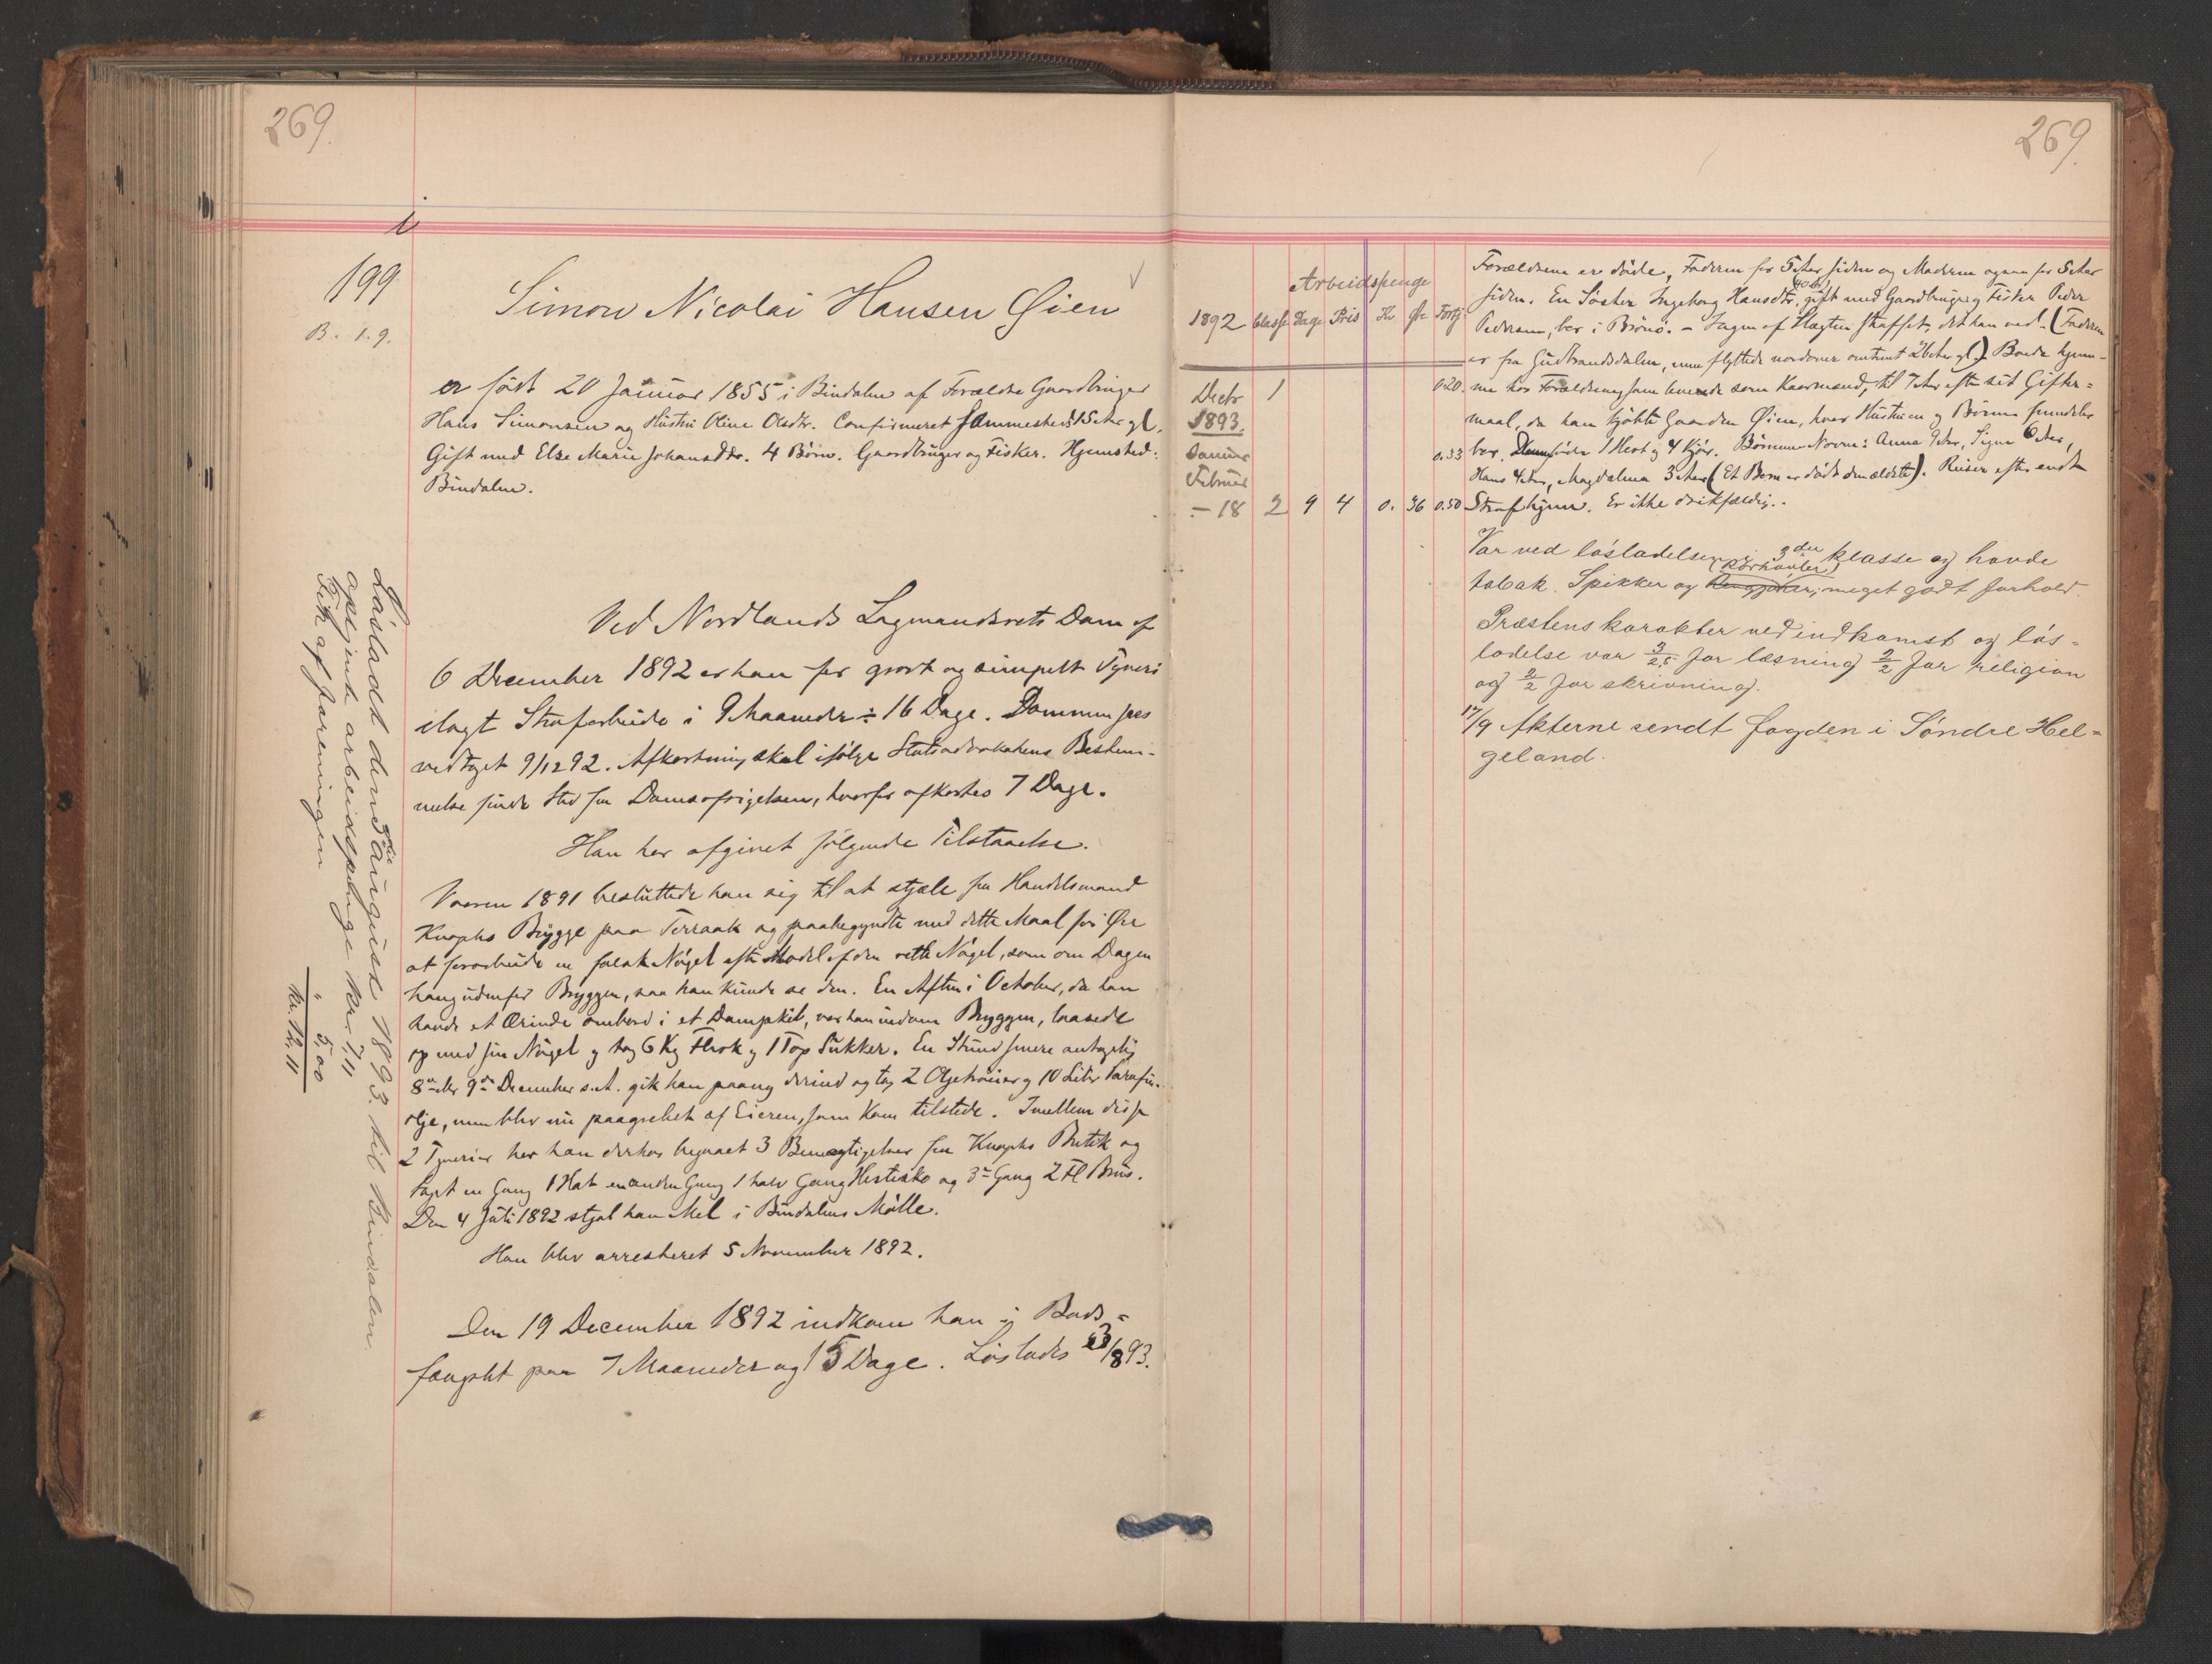 269.
i
199
B. 1.9.
Simon Nicolai Hansen Øien
er født 20 Januar 1855 i Bindalen af Forældre Gaardbruger
Hans Simonsen og Hustru Oline Olsdtr. Confirmeret sammesteds 15 Aar gl.
Gift med Else Marie Johansdtr. 4 Børn. Gaardbruger og Fisker. Hjemsted:
Bindalen.
Ved Nordlands Lagmandsrets Dom af
6 December 1892 er han for grovt og simpelt Tyveri
ilagt Strafarbeide i 9 Maaneder ÷ 16 Dage. Dommen
vedtaget 9/12 92. Afkortning skal ifølge Statsadvokatens Bestem-
melse finde Sted fra Domsafsigelsen, hvorfor afkortes 7 Dage.
Han har afgivet følgende Tilstaaelse.
Vaaren 1891 besluttede han sig til at stjæle fra Handelsmand
Knophs Brygge paa Terraak og paabegyndte med dette Maal for Øie
at forarbeide en falsk Nøgel efter Model af den rette Nøgel, som om Dagen
hang udenfor Bryggen, saa han kunde se den. En Aften i October, da han
havde et Ærinde ombord i et Dampskib, var han indom Bryggen, laasede
op med sin Nøgel og tog 6 Kg Flesk og 1 Top Sukker. En Stund senere antagelig
8de eller 9de December s.A. gik han paany derind og tog 2 Oljetrøier og 10 Liter Parafin-
olje, men blev nu paagrebet af Eieren, som kom tilstede. Imellem disse
2 Tyverier har han derhos begaaet 3 Bemægtigelser fra Knophs Butik og
taget en Gang 1 Hat en anden Gang 1 halv Gang Hestesko og 3die Gang 2 Fl Brus.
Den 4 Juli 1892 stjal han Mel i Bindalens Mølle.
Han blev arresteret 5 November 1892.
Den 19 December 1892 indkom han i Bods-
fængslet paa 7 Maaneder og 15 Dage. Løslades 3/8 93.
Løsladt den 3die august 1893 til Bindalen
opsjent arbeidspenge Kr. 7,11
Fik af foreningen " 5,00
Kr. 12,11
269.
Arbeidspenge
1892 Classe Dage Pris Kr Øre Fortj
Decbr 1 0.20
1893.
Januar 0.33
Februar
- 18 2 9 4 0. 36 0.50
Forældrene er døde, Faderen for 5 Aar siden og Moderen ogsaa for 5 Aar
siden. En Søster Ingeborg Hansdtr. (40 Aar) gift med Gaardbruger og Fisker Peder
Pedersen, bor i Brønø. - Ingen af Slægten straffet, det han ved. (Faderen
er fra Gudbrandsdalen, men flyttede nordover omtrent 26 Aar gl). Boede hjem-
me hos Forældrene som levende som Kaarmænd, til 7 Aar efter sit Gifter-
maal, da han kjøbte Gaarden Øien, hvor Hustruen og Børnene fremdeles
bor. føder 1 Hest og 4 Kjør. Børnenes Navne: Anna 9 Aar, Signe 6 Aar,
Hans 4 Aar, Magdalena 3 Aar (Et Barn er dødt den ældste). Reiser efter endt
Straf hjem. Er ikke drikfældig.
Var ved løsladelsen i 3die klasse og havde
tabak. Spikker og (Rørhøvler) meget godt forhold.
Præstens karakter ved indkomst og løs-
ladelse var 3/2,5 for læsning 2/2 for religion
og 2/2 for skrivning.
17/9 Akterne sendt fogden i Søndre Hel-
geland.